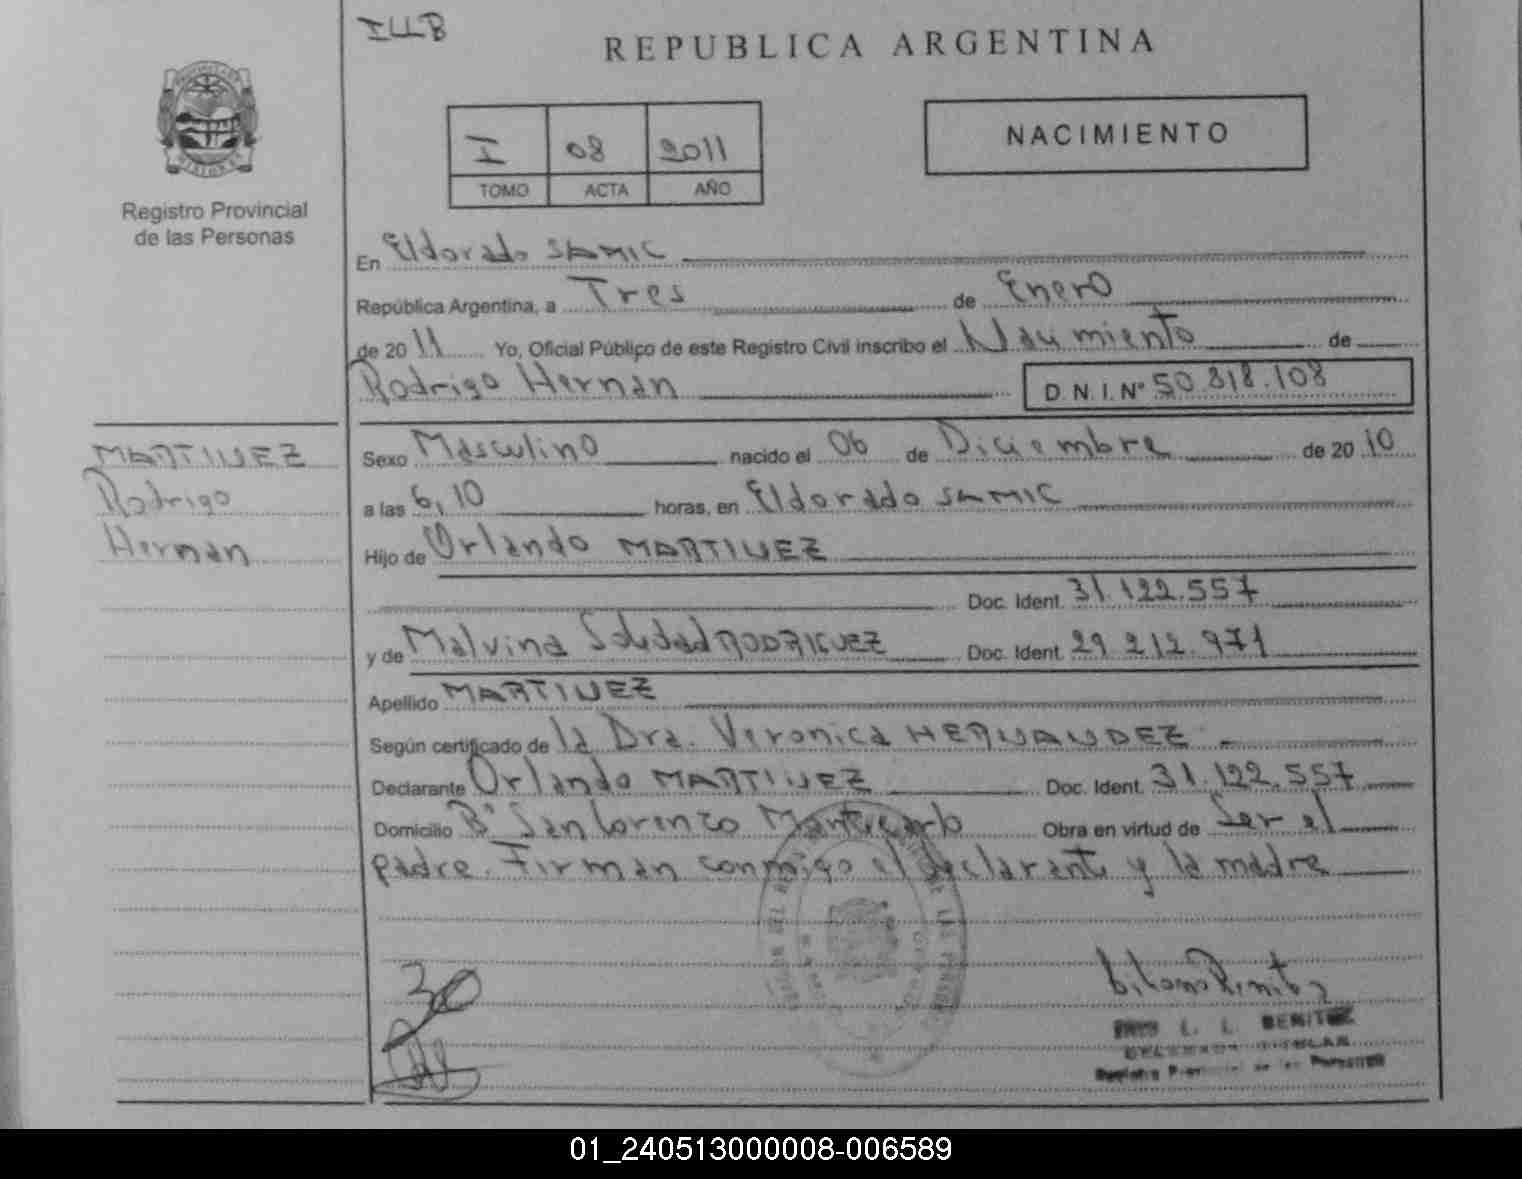 ILLB
REPUBLICA ARGENTINA
I 08 2011
TOMO ACTA AÑO
NACIMIENTO
MISIONES
Registro Provincial
de las Personas
En Eldorado SAMIC
República Argentina, a Tres de Enero
de 2011 Yo, Oficial Público de este Registro Civil inscribo el Nacimiento de
Rodrigo Hernan D.N.I. Nº 50.818.108
MARTINEZ
Rodrigo
Hernan
Sexo Masculino nacido el 06 de Diciembre de 2010
a las 6,10 horas, en Eldorado SAMIC
Hijo de Orlando MARTINEZ
Doc. Ident. 31.122.557
y de Malvina Soledad RODRIGUEZ Doc. Ident. 29 212.971
Apellido MARTINEZ
Según certificado de la Dra. Veronica HERNANDEZ
Declarante Orlando MARTINEZ Doc. Ident. 31.122.557
Domicilio Bº San Lorenzo Montecarlo Obra en virtud de Ser el
padre. Firman conmigo el declarante y la madre
L. L. BENITEZ
DELEGADA TITULAR
Registro Provincial de las Personas
01_240513000008-006589